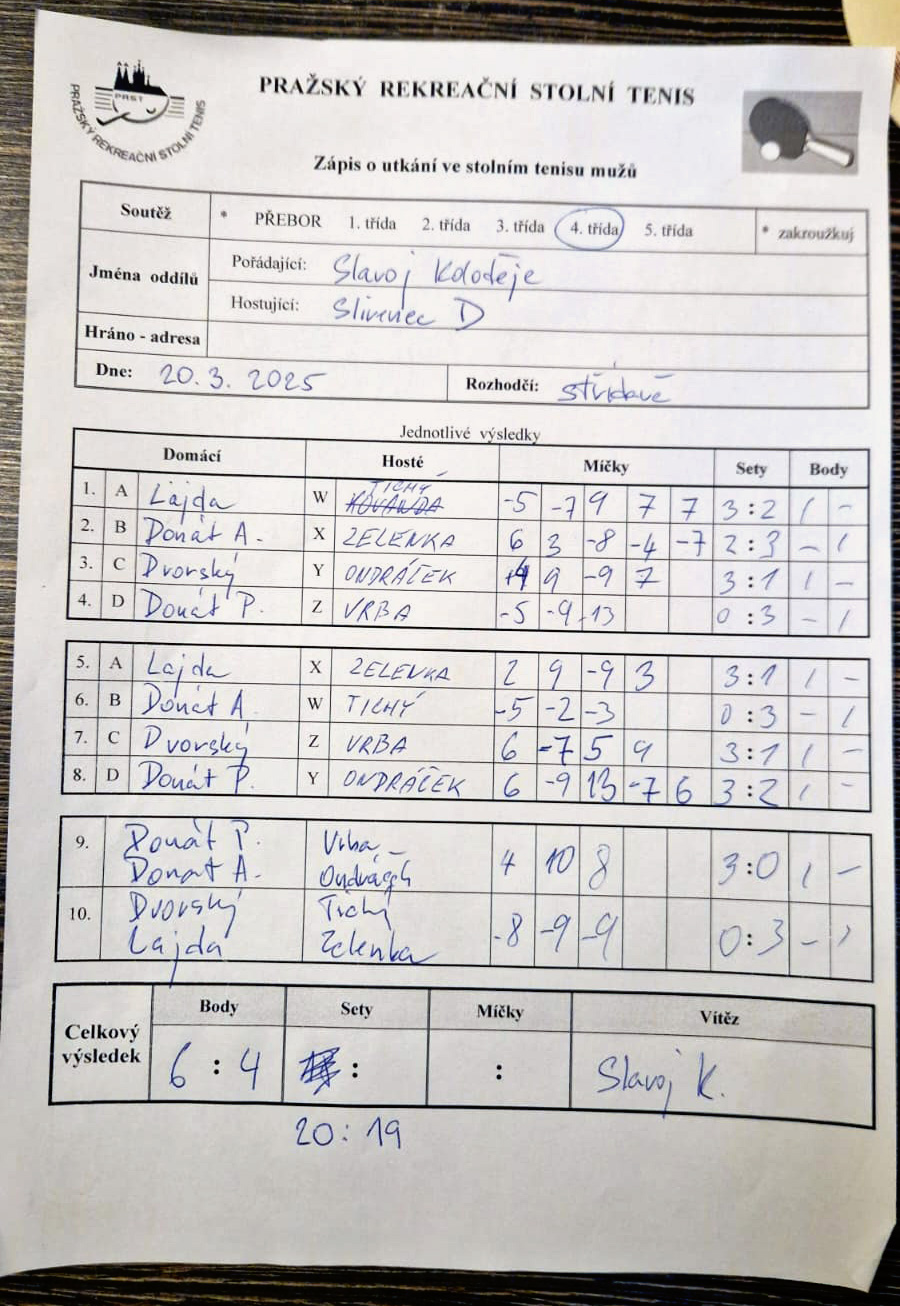 PRST
PRAŽSKÝ REKREAČNÍ STOLNÍ TENIS
PRAŽSKÝ REKREAČNÍ STOLNÍ TENIS
Zápis o utkání ve stolním tenisu mužů
Soutěž * PŘEBOR 1. třída 2. třída 3. třída 4. třída 5. třída * zakroužkuj
Jména oddílů
Pořádající: Slavoj Koloděje
Hostující: Slivenec D
Hráno - adresa
Dne: 20. 3. 2025 Rozhodčí: střídavě
Jednotlivé výsledky
Domácí Hosté Míčky Sety Body
TICHÝ
1. A Lajda W KOVANDA -5 -7 9 7 7 3:2 1 -
2. B Donát A. X ZELENKA 6 3 -8 -4 -7 2:3 - 1
3. C Dvorský Y ONDRÁČEK 4 9 -9 7 3:1 1 -
4. D Donát P. Z VRBA -5 -9 -13 0:3 - 1
5. A Lajda X ZELENKA 2 9 -9 3 3:1 1 -
6. B Donát A. W TICHÝ -5 -2 -3 0:3 - 1
7. C Dvorský Z VRBA 6 -7 5 9 3:1 1 -
8. D Donát P. Y ONDRÁČEK 6 -9 13 -7 6 3:2 1 -
9. Donát P. Vrba -
Donat A. 4 10 8 3:0 1 -
10. Dvorský Tichý
Lajda Zelenka -8 -9 -9 0:3 - 1
Celkový výsledek
Body Sety Míčky Vítěz
6 : 4 : : Slavoj K.
20 : 19